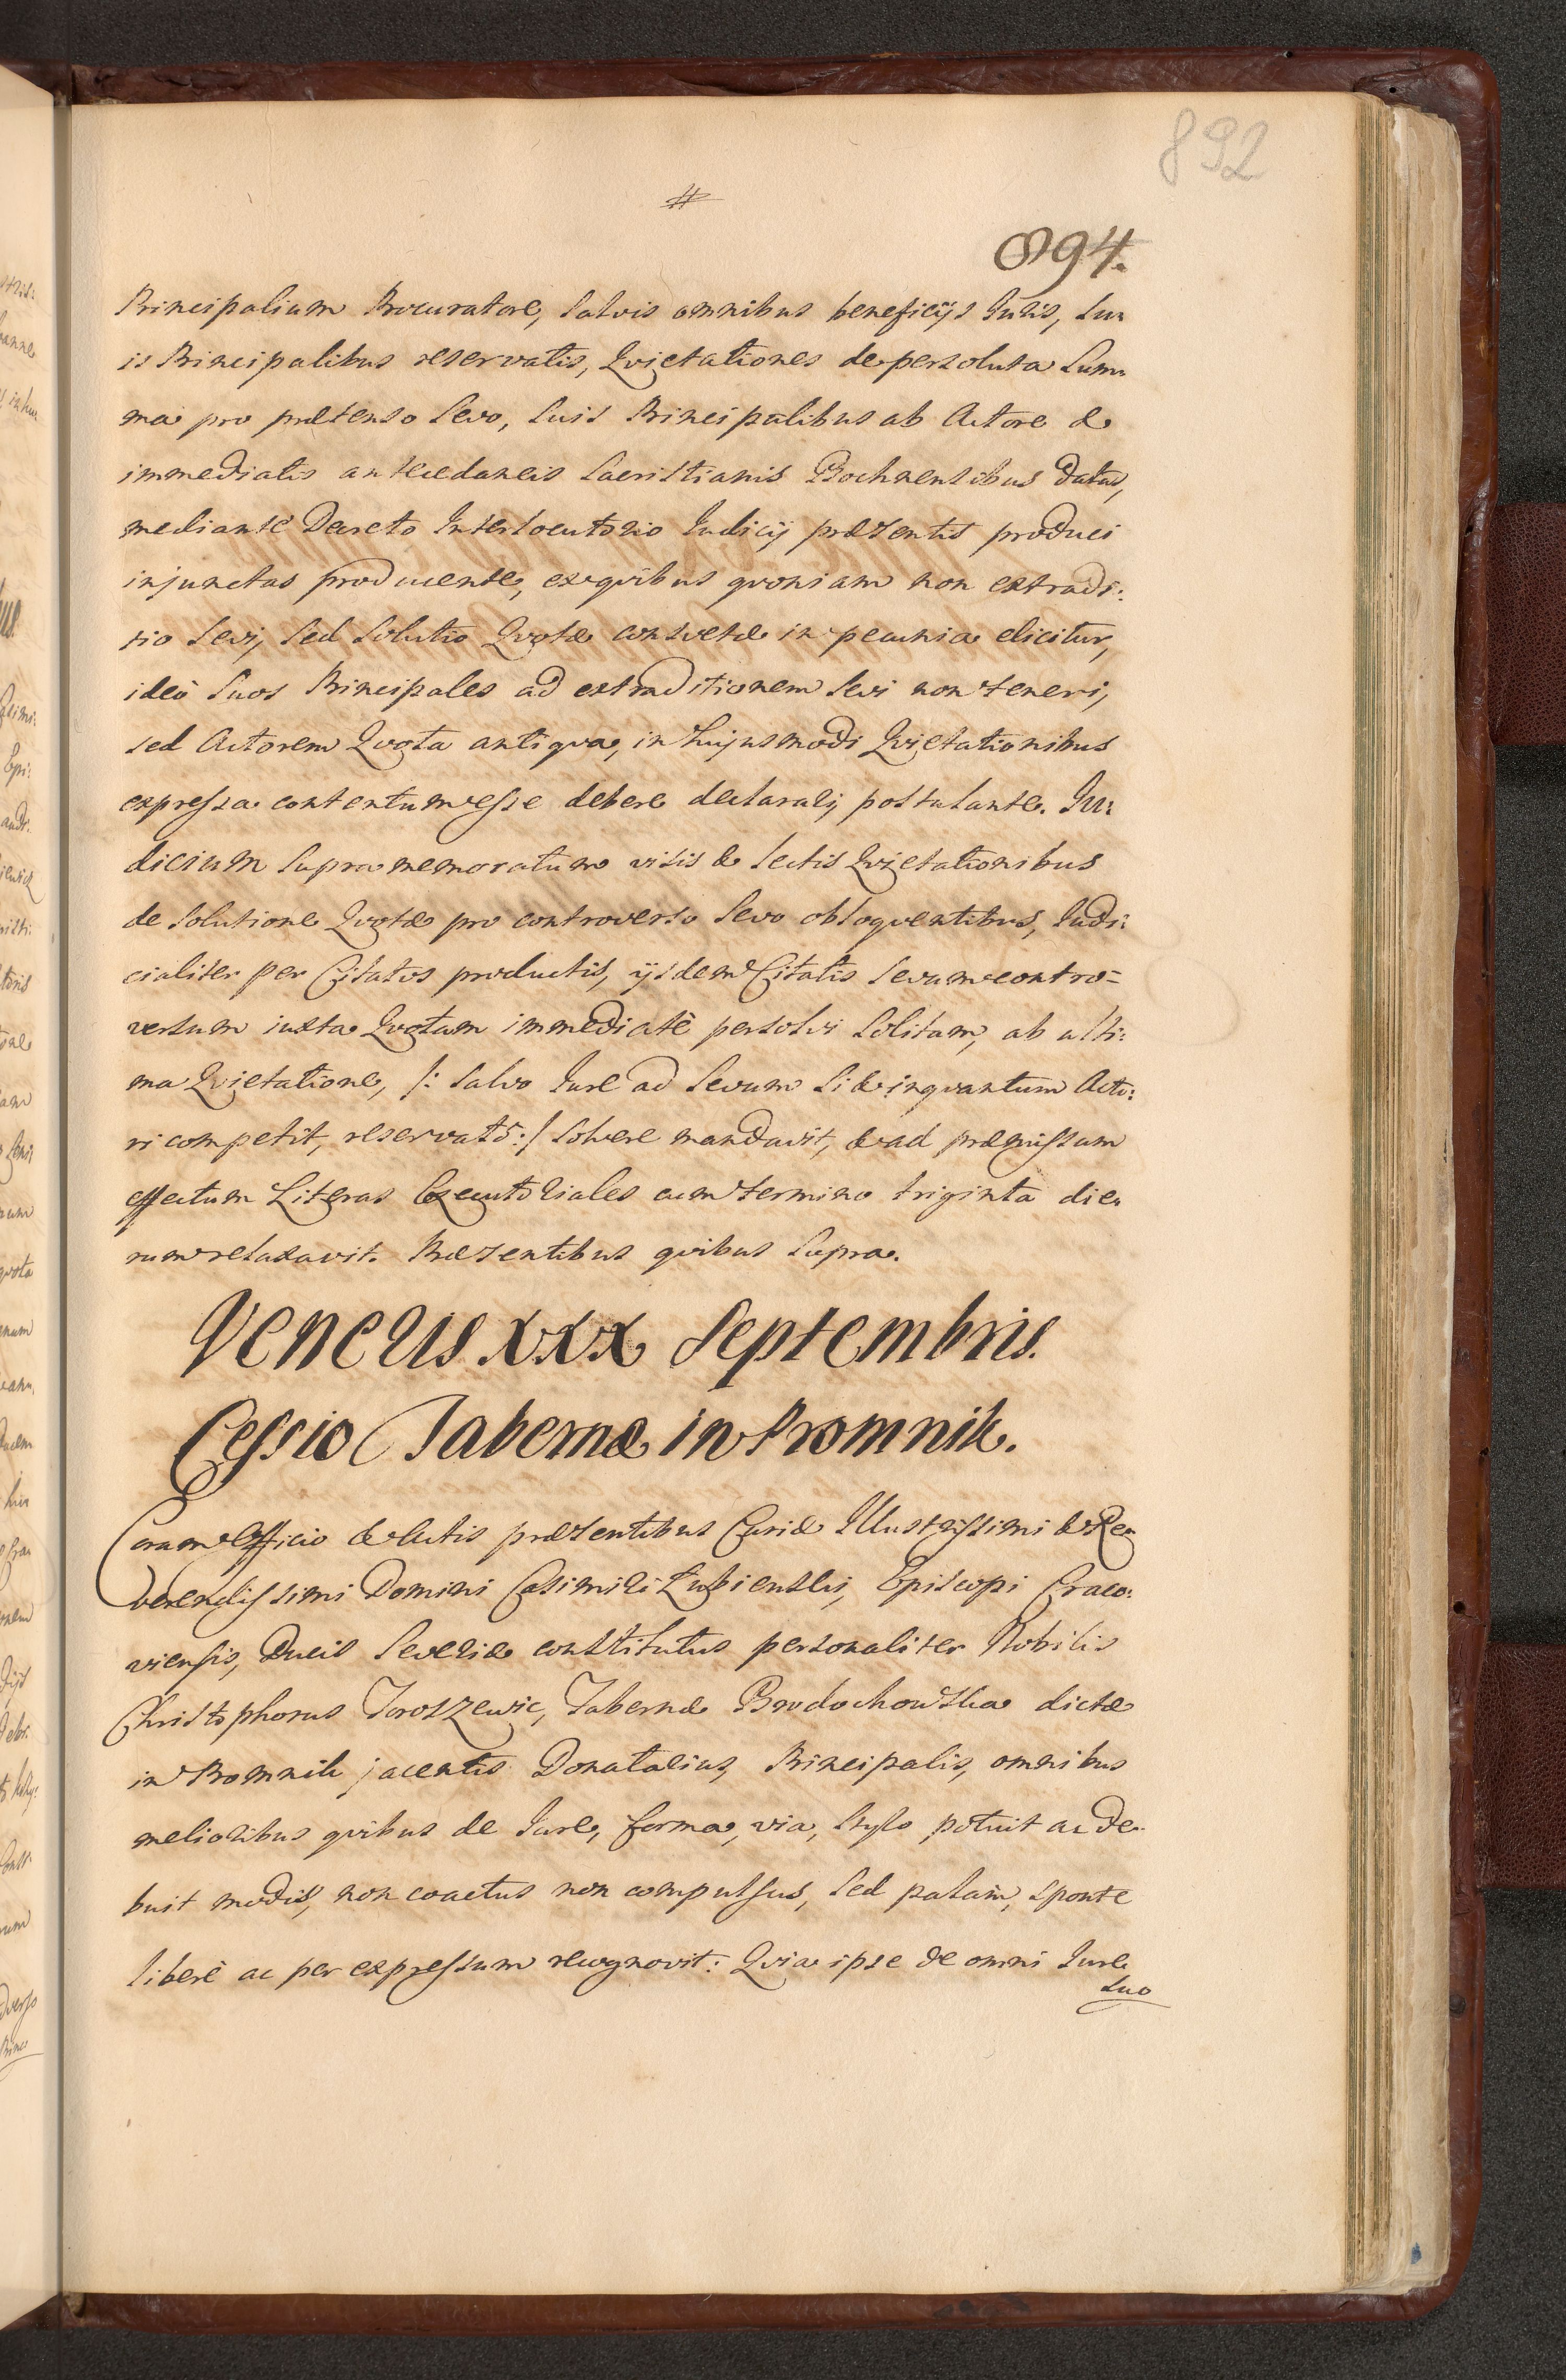 892
#
894.
Principalium Procuratore, salvis omnibus beneficijs Iuris, su:
is Principalibus reservatis, Qvietationes de persoluta Sum:
ma pro prætenso Sevo, suis Principalibus ab Actore &
immediatis antecedaneis Sacristianis Bochnensibus datas,
mediante Decreto Interlocutorio Iudicij præsentis produci
injunctas producente, ex qvibus qvoniam non extradi:
tio Sevi, sed Solutio Qvotæ consvetæ in pecunia elicitur,
ideò suos Principales ad extraditionem Sevi non teneri,
sed Actorem Qvota antiqva, in hujusmodi Qvietationibus
expressa contentum esse debere declarari postulante. Iu:
dicium supra memoratum visis & lectis Qvietationibus
de Solutione Qvotæ pro controverso Sevo obloqventibus, Iudi:
cialiter per Citatos productis, ijsdem Citatis Sevum contro=
versum iuxta Qvotam immediatè persolvi solitam, ab ulti:
ma Qvietatione, /: salvo Iure ad Sevum si & inqvantum Acto:
ri competit, reservato :/ solvere mandavit, & ad præmissum
effectum Literas Executoriales cum termino triginta die:
rum relaxavit. Præsentibus qvibus supra.
Veneris xxx Septembris.
Cessio Tabernæ in Promnik.
Coram Officio & Actis præsentibus Curiæ Illustrissimi & Re:
verendissimi Domini Casimiri Łubienski, Episcopi Craco:
viensis, Ducis Severiæ constitutus personaliter Nobilis
Christophorus Jaroszewic, Tabernæ Brodochowska dictæ
in Promnik jacentis Donatarius, Principalis, omnibus
melioribus qvibus de Iure, forma, via, stylo, potuit ac de:
buit modis, non coactus non compulsus, sed palàm, sponte
liberè ac per expressum recognovit: Qvia ipse de omni Iure
suo